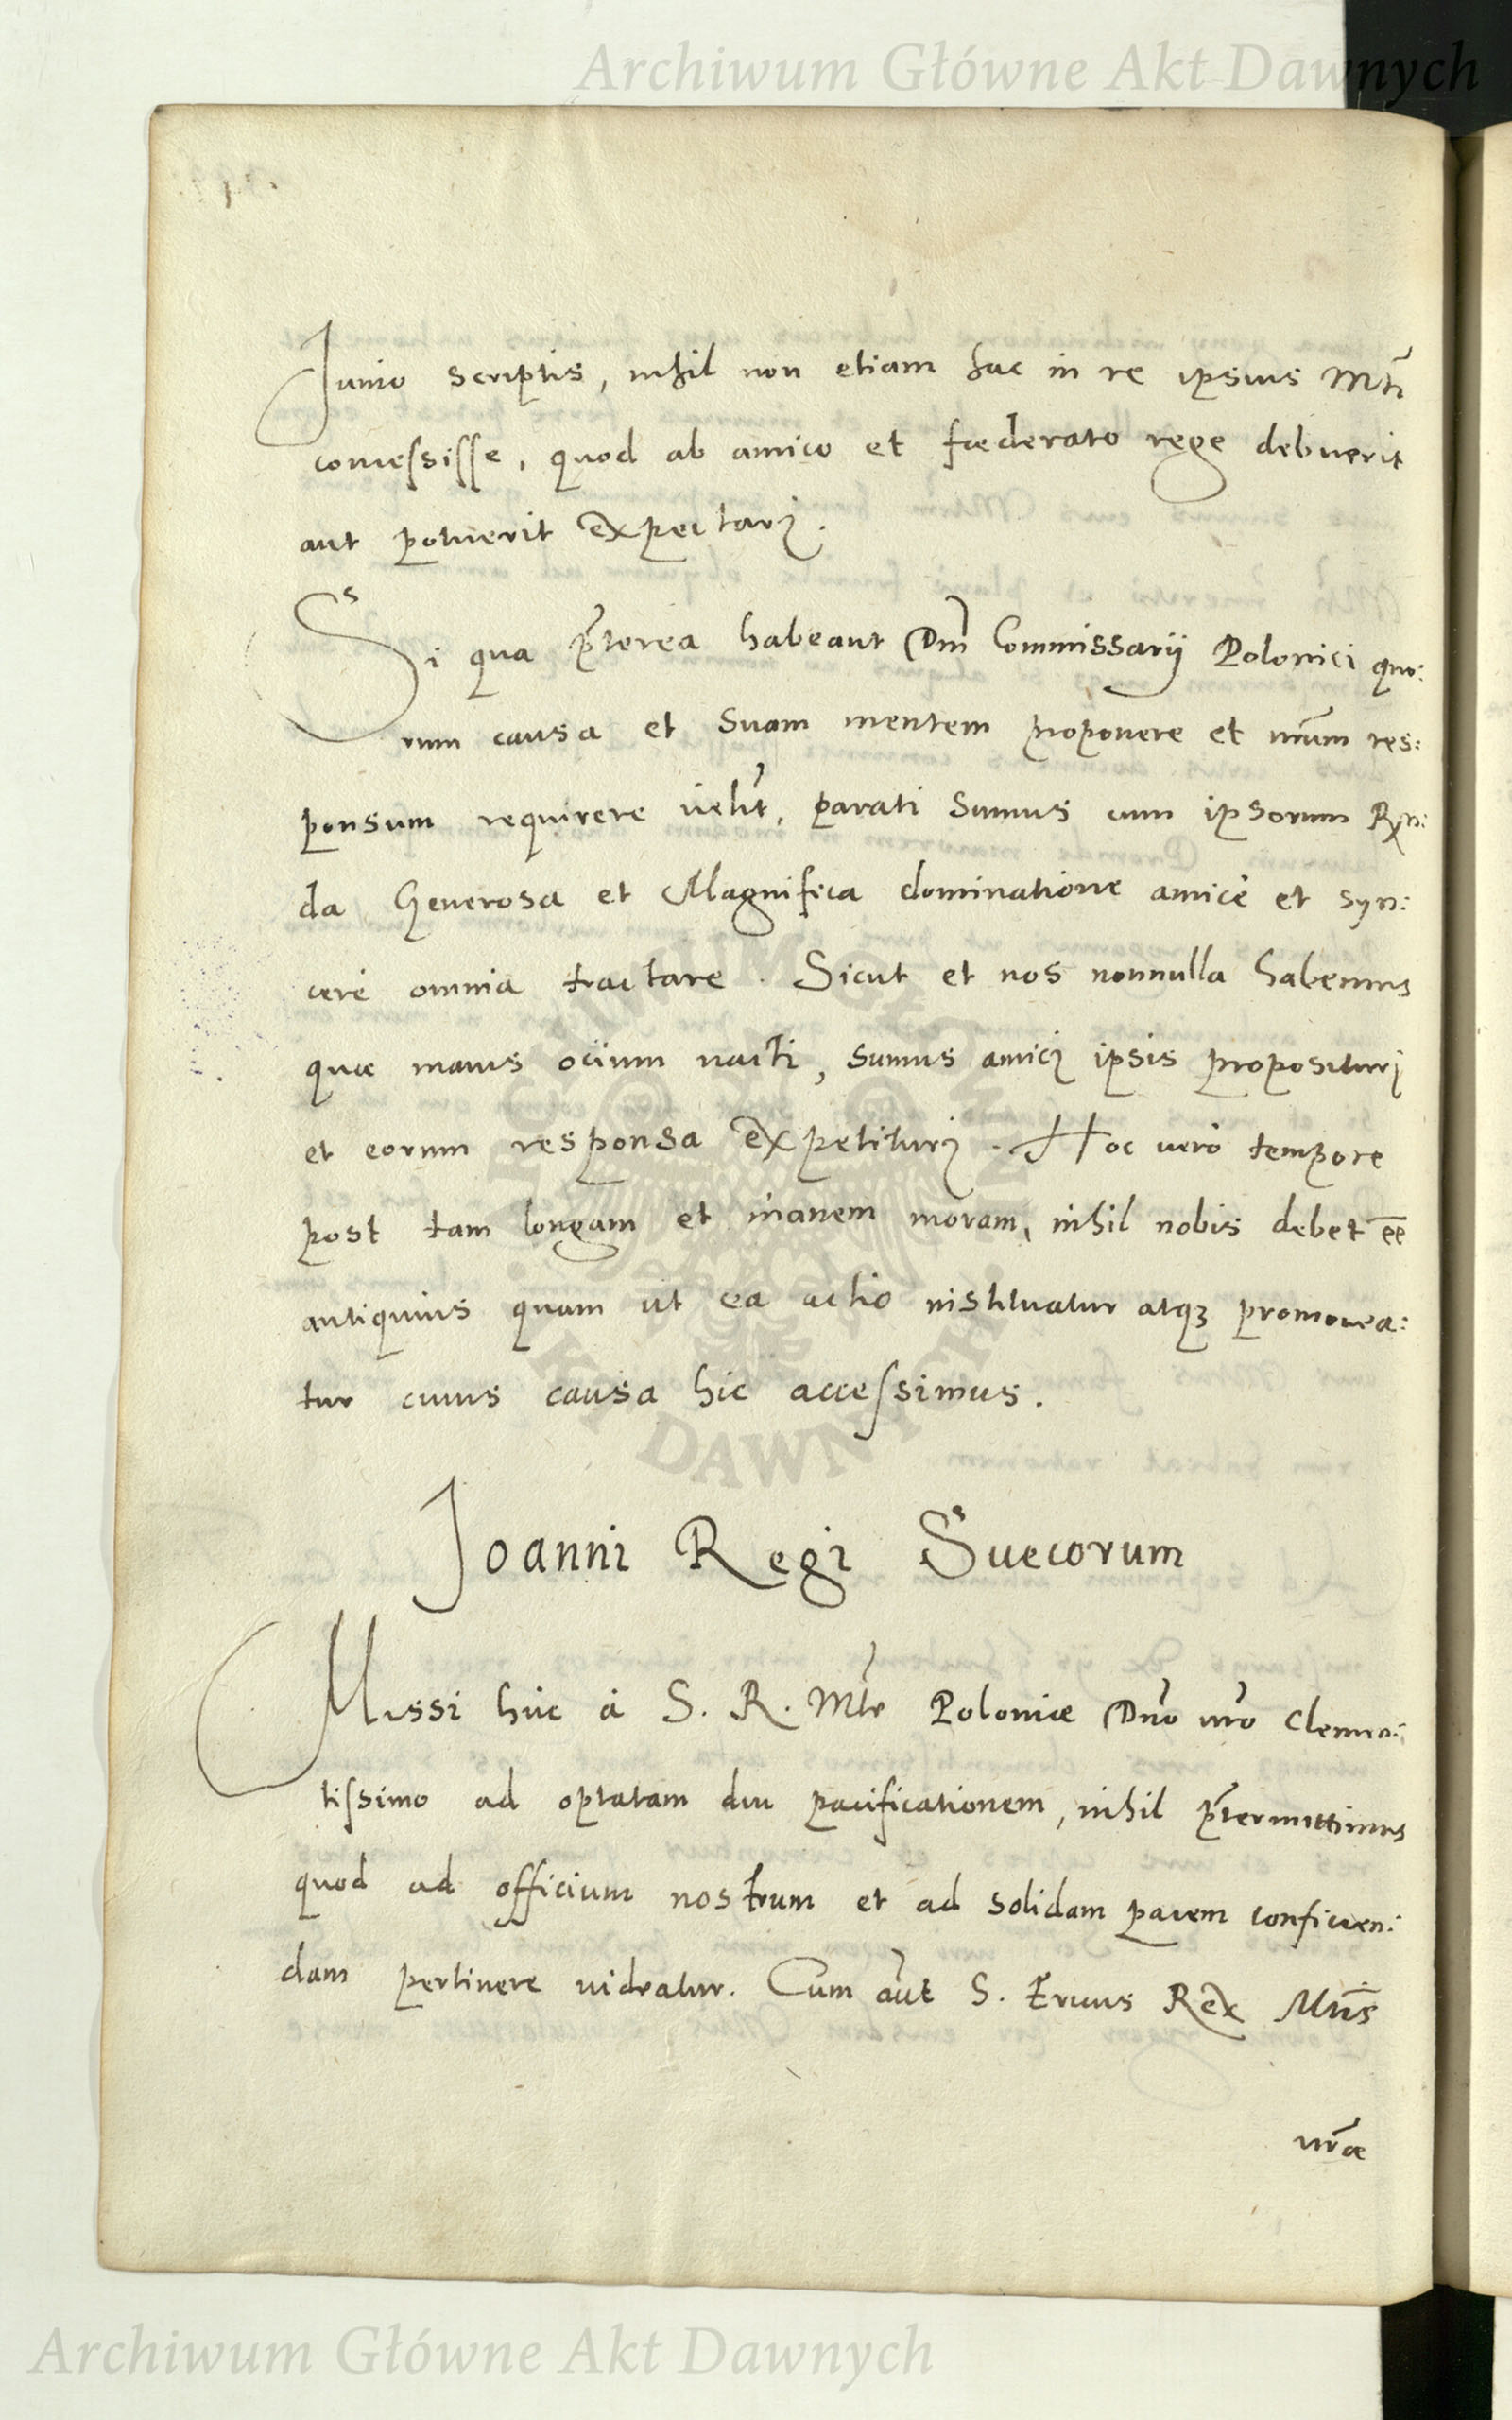 Archiwum Główne Akt Dawnych
Junio scriptis, nihil non etiam hac in re ipsius Mti
concessisse, quod ab amico et fœderato rege debuerit
aut potuerit expectari.
Si qua pterea habeant Dni Commissarij Polonici quo:
rum causa et suam mentem proponere et nrum res:
ponsum requirere uelit, parati sumus cum ipsorum Rn:
da Generosa et Magnifica dominatione amicè et syn:
cerè omnia tractare. Sicut et nos nonnulla habemus
quæ maius ocium nacti, sumus amicis ipsis proposituri
et eorum responsa expetituri. Hoc uerò tempore
post tam longam et inanem moram, nihil nobis debet ee
antiquius quam ut ea actio instituatur atq3 promouea:
tur cuius causa hic accessimus.
Joanni Regi Suecorum
Missi huc à S. R. Mte Poloniæ Dno nro Clemen:
tissimo ad optatam diu pacificationem, nihil ptermittimus
quod ad officium nostrum et ad solidam pacem conficien:
dam pertinere uideatur. Cum aut S. Ericus Rex Mtis
nræ
ARCHIWUM GŁÓWNE AKT DAWNYCH
Archiwum Główne Akt Dawnych